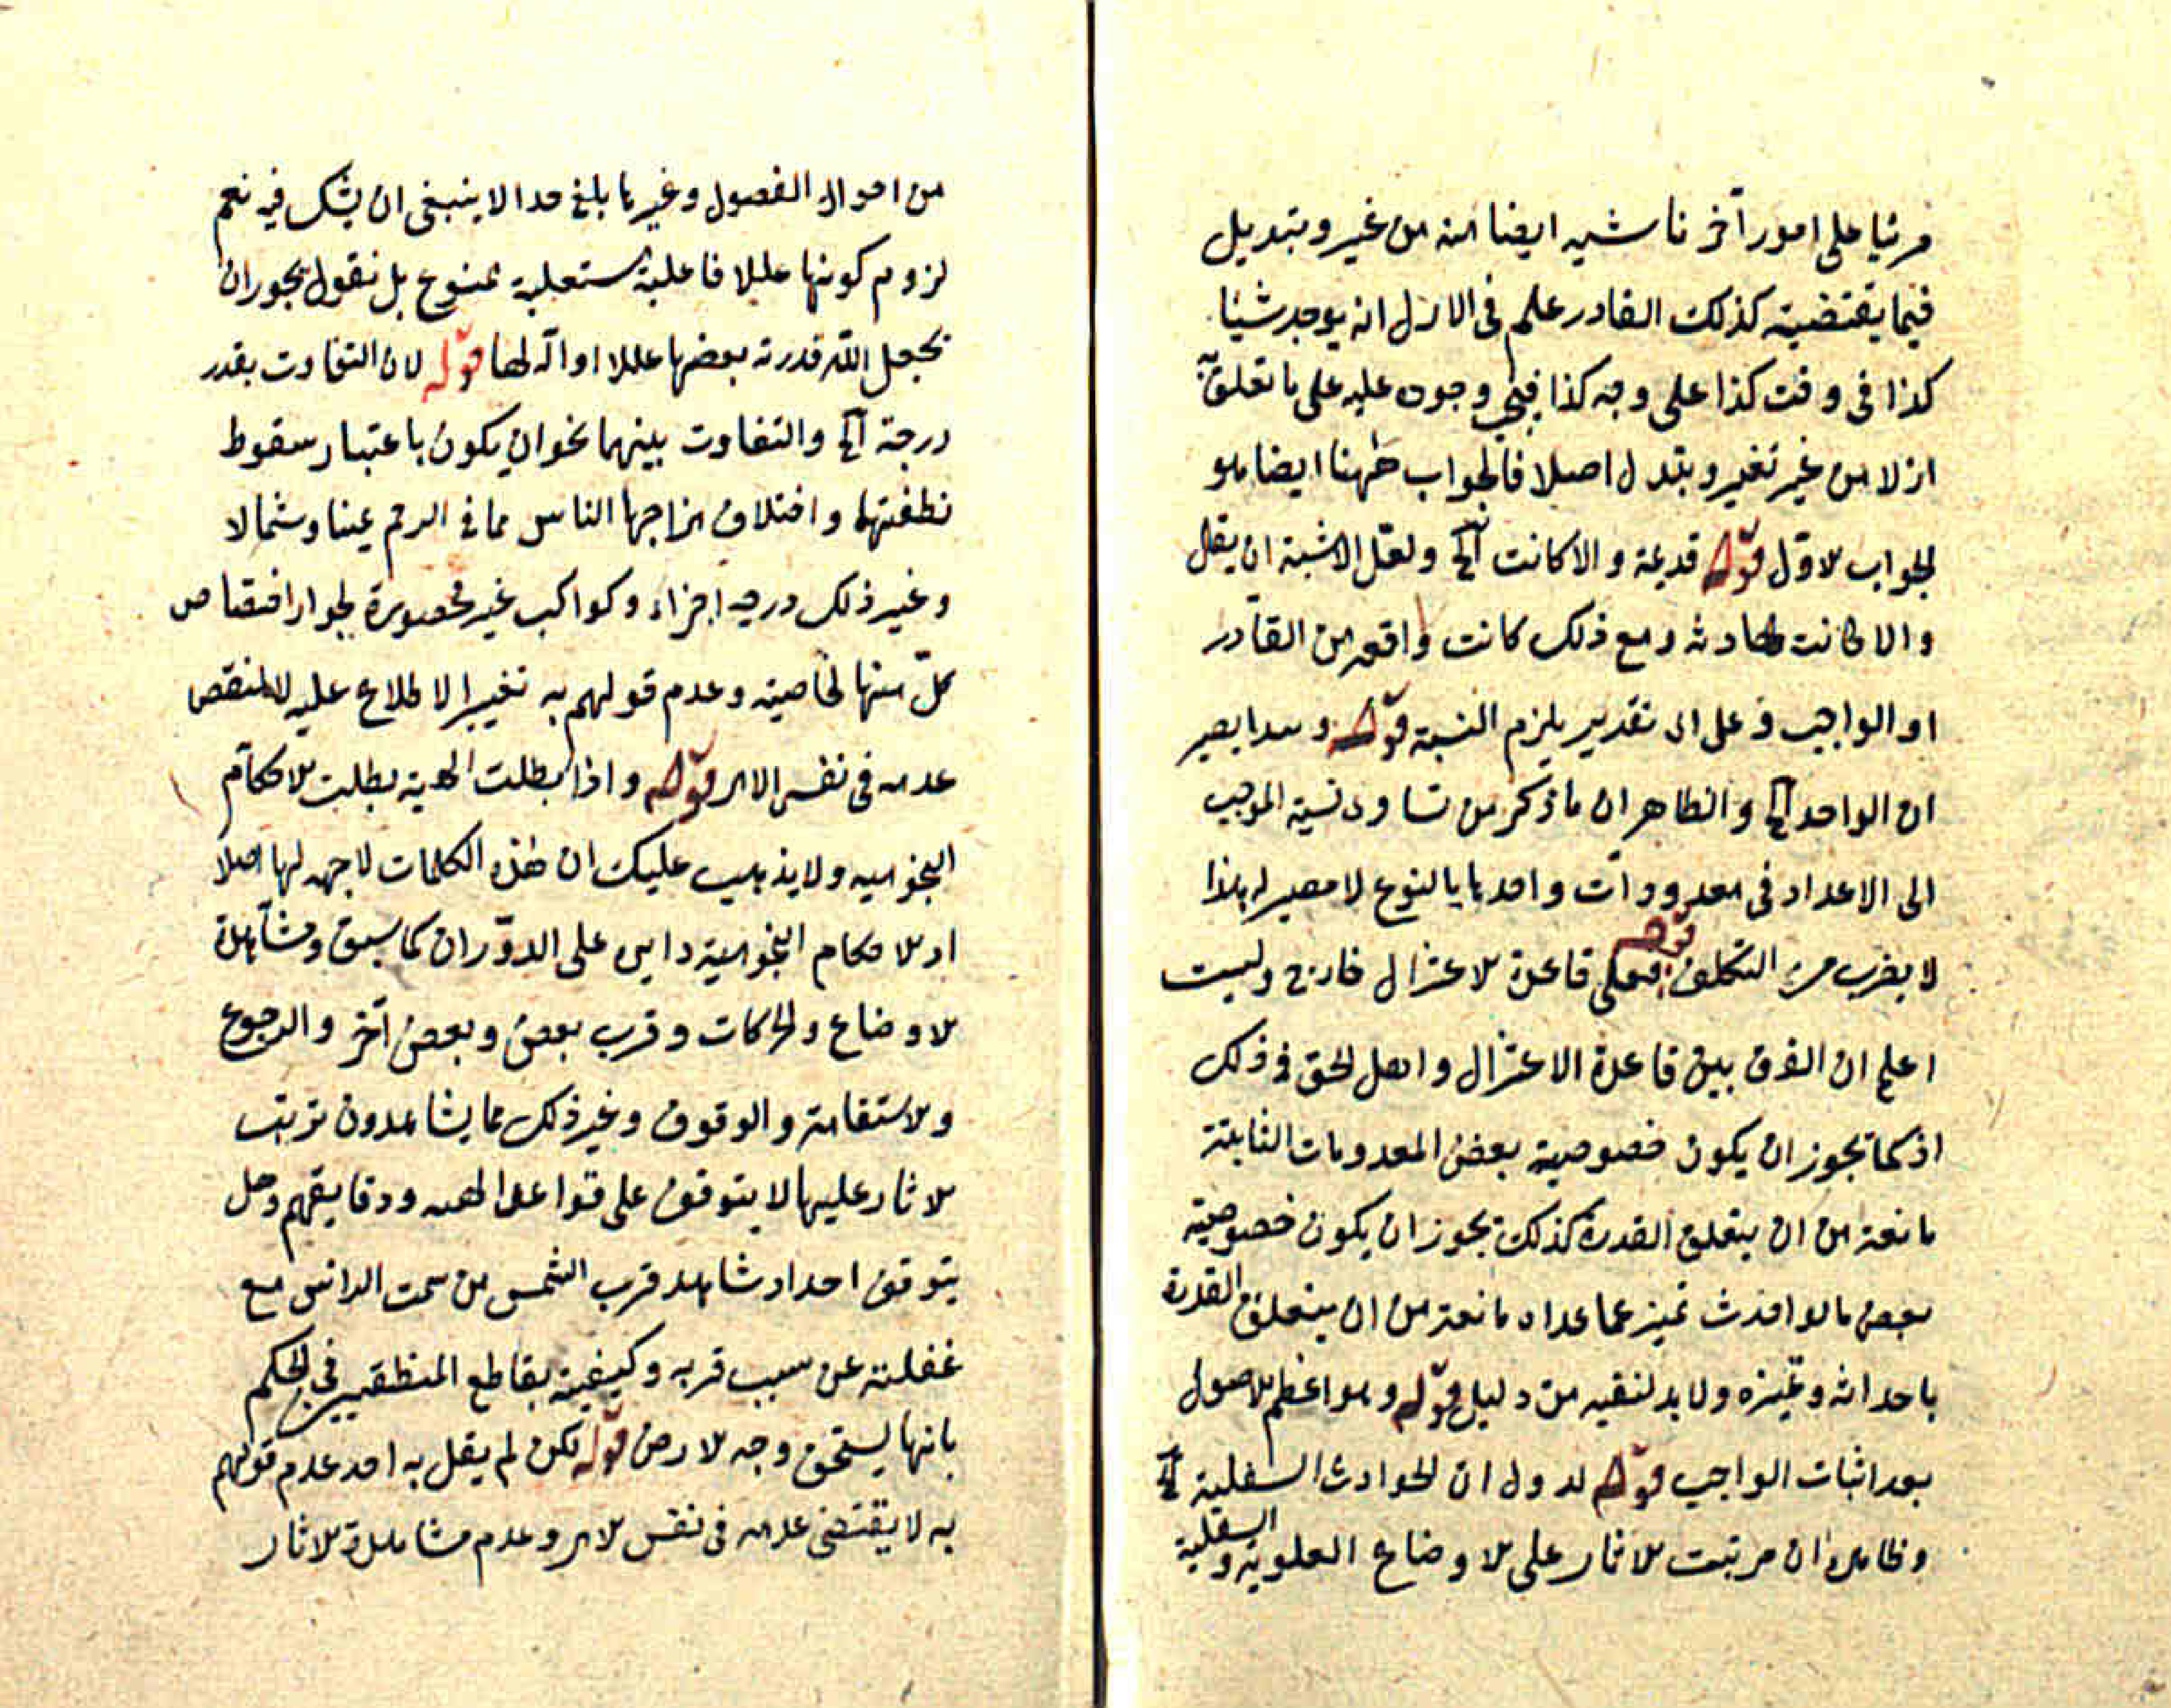 مرتبا على امور آخر ناشيه ايضا منه من غير وتبديل
فيما يقتضيته كذلك القادر علم فى الازل انه يوجد شيئا
كذا فى وقت كذا على وجه كذا فيجى وجوده عليه على ما تعلق به
ازلا من غير تغير وتبدل اصلا فالجواب ههنا ايضا هو
الجواب الاول قوله قديمة والا كانت الخ ولعل الاشبه ان يقال
والا كانت حادثه ومع ذلك كانت واقعه من القادر
او الواجب فعلى اى تقدير يلزم النسبة قوله وبهذا يصير
ان الواحد الخ والظاهر ان ما ذكر من تساوى نسبة الموجب
الى الاعداد فى معدودات واحدها بالنوع لا مصير له بهذا
لا يقرب من التكلف قوله فعلى قاعدة الاعتزال خارج وليست
اعلم ان الفرق بين قاعدة الاعتزال واهل الحق فى ذلك
اذ كما يجوز ان يكون خصوصية بعض المعدومات الثابتة
مانعة من ان يتعلق القدرة كذلك يجوز ان يكون خصوصية
بعض ما لو احدث تميز عما عداه مانعة من ان يتعلق القدرة
باحداثه وتميزه ولا بد لنفيه من دليل قوله وهو اعظم الاصول
بعد اثبات الواجب قوله لدول ان الحوادث السفلية الخ
وظاهر ان مرتبت الاثار على الاوضاع العلوية والسفلية
من احوال الفصول وغيرها بلغ حدا لا ينبغى ان يشك فيه نعم
لزوم كونها عللا فاعلية مستعلية ممنوع بل نقول يجوز ان
يجعل الله قدرته بعضها عللا او آلة لها قوله لان التفاوت بقدر
درجة الخ والتفاوت بينهما نحو ان يكون باعتبار سقوط
نطفتها واختلاف مزاجها الناس مما فى الرحم يمينا وشمالا
وغير ذلك درجه اجزاء وكواكب غير محصورة لجواز اختصاص
كل منها لخاصية وعدم قولهم به تغيير الاطلاع عليه لا ينقص
عدمه فى نفس الامر قوله واذا بطلت الهية بطلت الاحكام
النجوميه ولا يذهب عليك ان هذه الكلمات لا جهه لها اصلا
اذ الاحكام النجومية دايره على الدوران كما سبق ومشاهدة
الاوضاع والحركات وقرب بعض وبعض آخر والرجوع
والاستقامة والوقوف وغير ذلك مما يشاهدون ترتب
الاثار عليها لا يتوقف على قواعد الهيه ودقايقهم وهل
يتوقف احد اذ شاهد قرب الشمس من سمت الرأس مع
غفلته عن سبب قربه وكيفية تقاطع المنطقتين فى الحكم
بانها يستحق وجه الارض قوله لكن لم يقل به احد عدم قولهم
به لا يقتضى عدمه فى نفس الامر وعدم مشاهدة الاثار